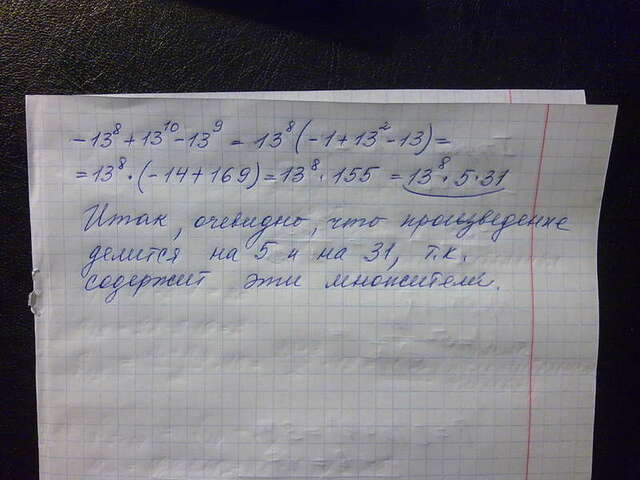 -13⁸+13¹⁰-13⁹ = 13⁸(-1+13²-13)=
=13⁸·(-14+169)=13⁸·155 = 13⁸·5·31
Итак, очевидно, что произведение
делится на 5 и на 31, т.к.
содержит эти множители.